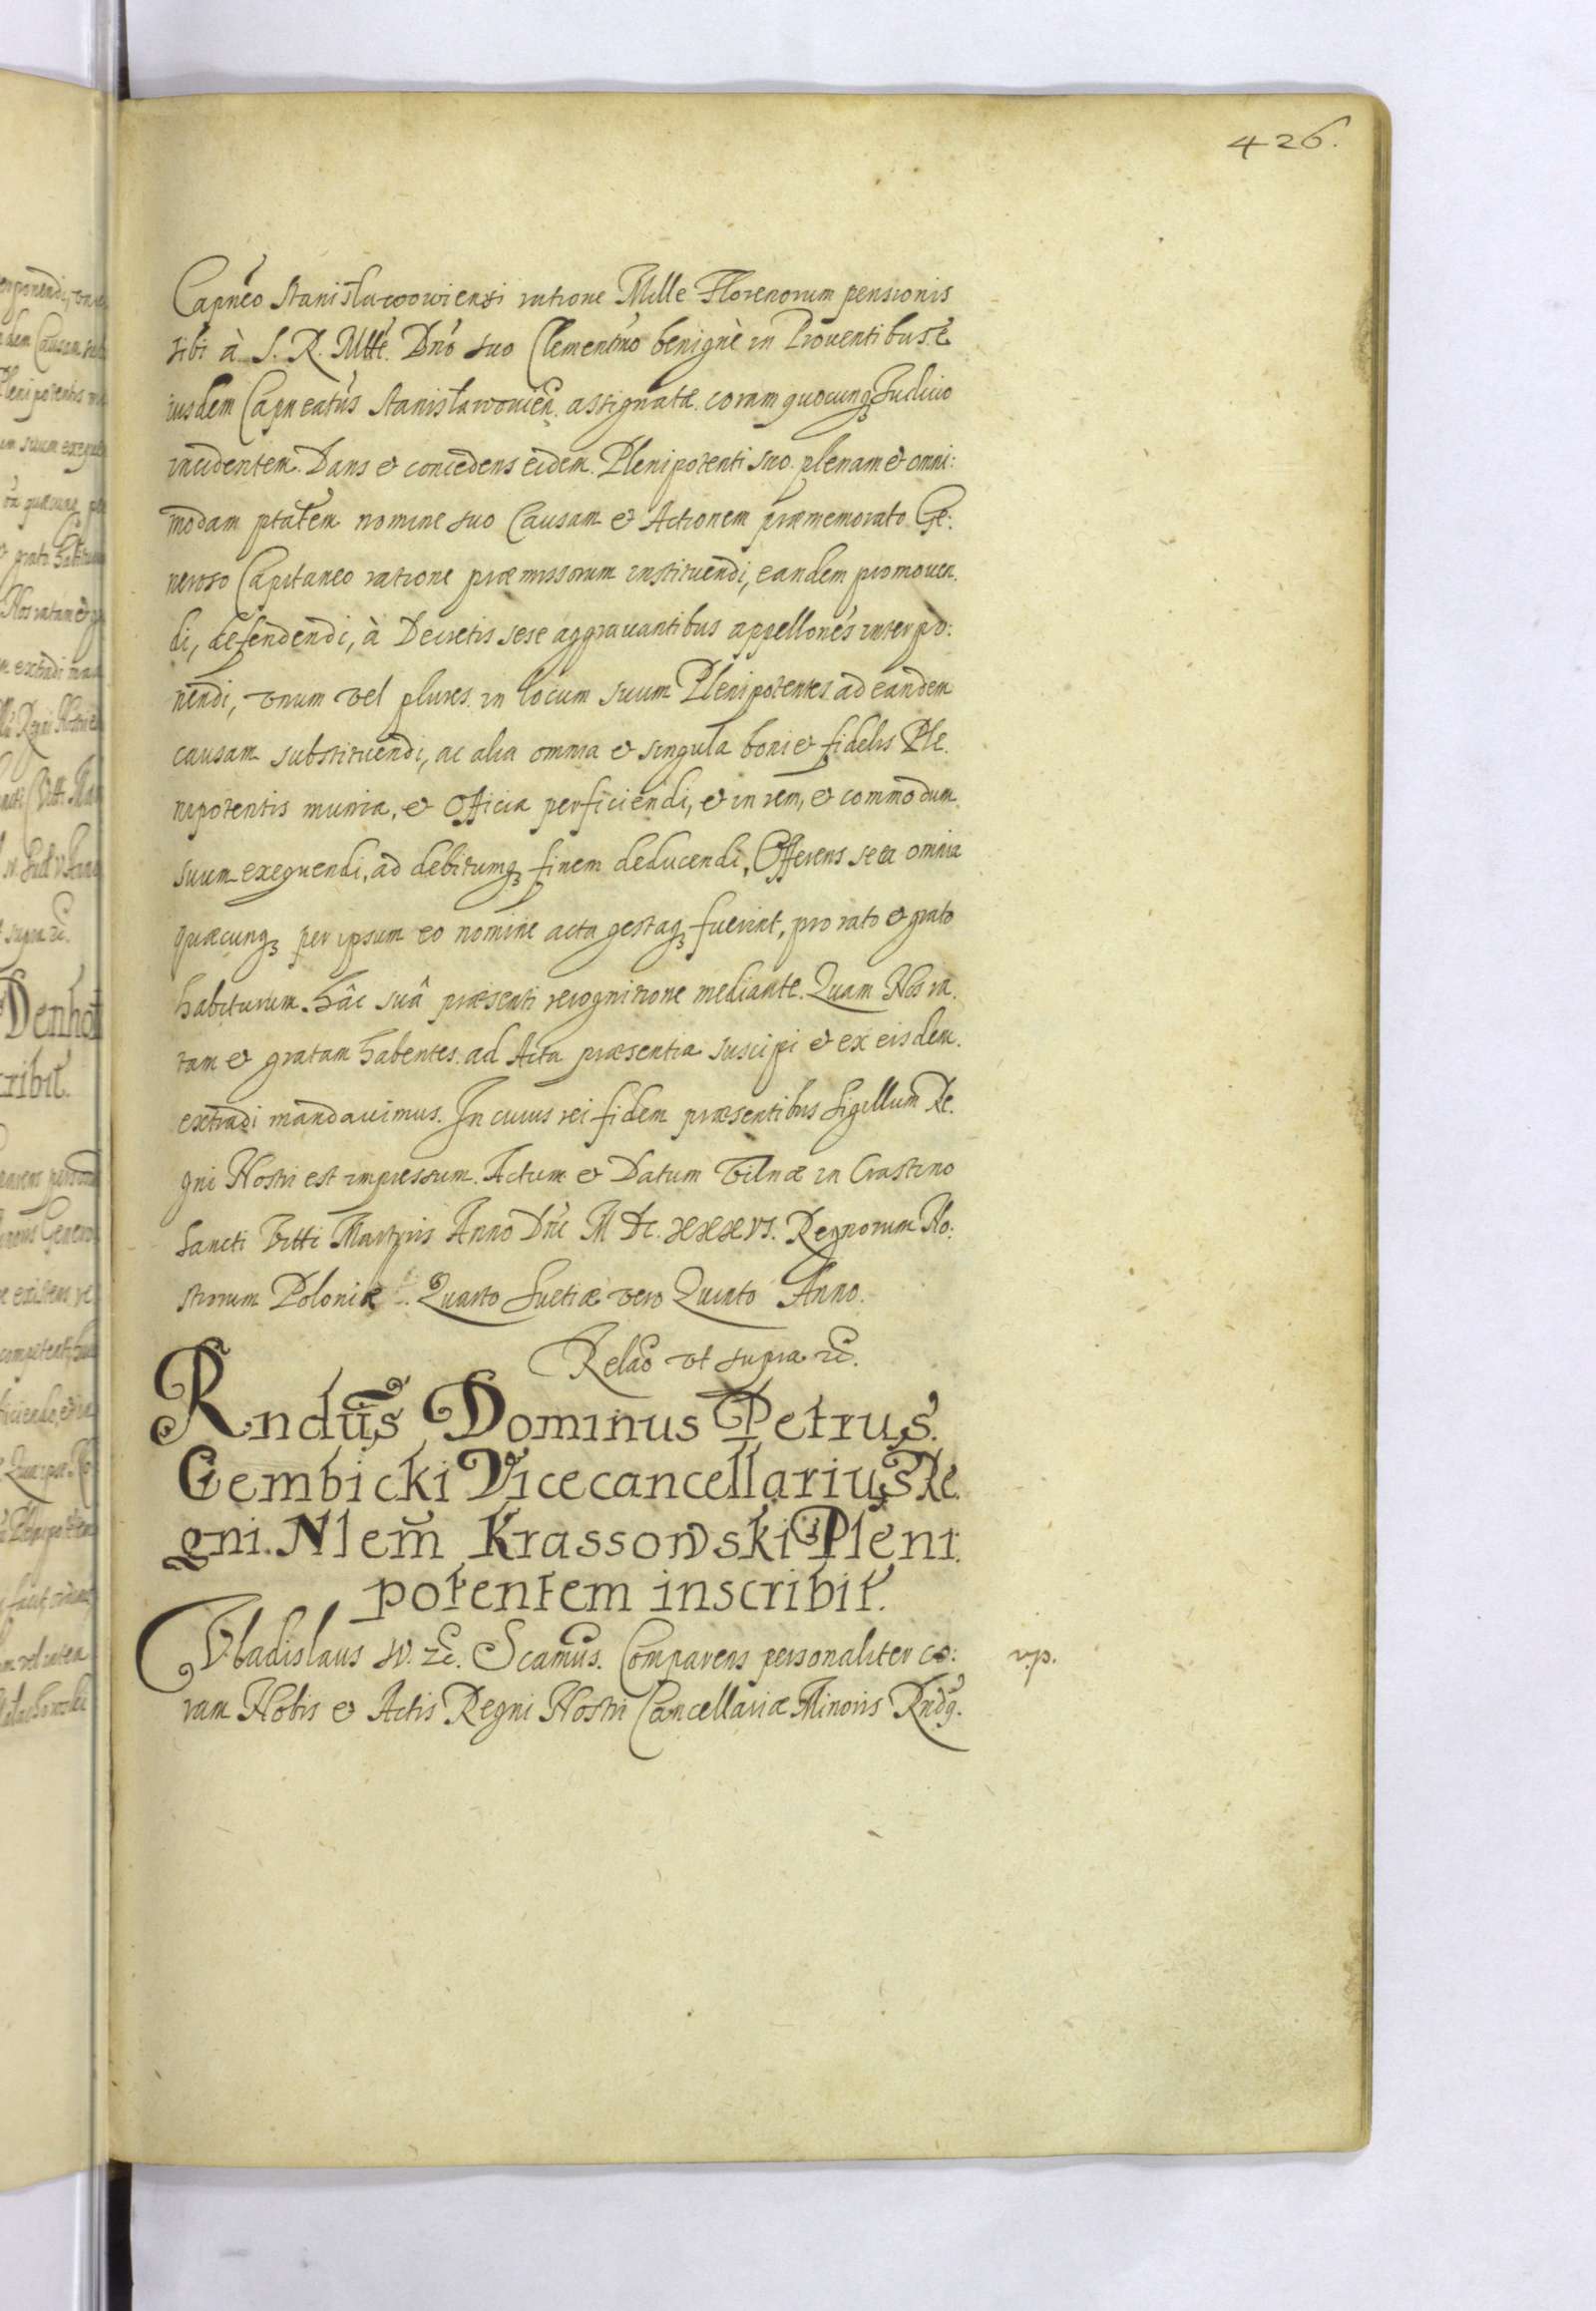 426.
Capnéo Stanislawowiensi ratione Mille Florenorum pensionis
sibi à S. R. Mtte. Dnô suo Clementmo benignè in Prouentibus e
iusdem Capneatûs Stanislawowien̄. assignatæ. coram quocunqȝ Iudicio
incidentem. Dans et concedens eidem. Plenipotenti suo. plenam et omni:
modam ptatem nomine suo Causam et Actionem præmemorato Ge.
neroso Capitaneo ratione præmissorum instituendi, eandem promouen.
di, defendendi, à Decretis sese aggrauantibus appellones interpo:
nendi, vnum vel plures in locum suum Plenipotentes ad eandem
causam substituendi, ac alia omnia et singula boni et fidelis Ple.
nipotentis munia, et Officia perficiendi, et in rem, et commodum
suum exequendi, ad debitumqȝ finem deducendi, Offerens se ea omnia
quæcunqȝ per ipsum eo nomine acta gestaqȝ fuerint, pro rato et grato
habiturum. hâc suâ præsenti recognitione mediante. Quam Nos ra.
tam et gratam habentes. ad Acta præsentia suscipi et ex eisdem.
extradi mandauimus. In cuius rei fidem præsentibus Sigillum Re.
gni Nostri est impressum. Actum et Datum Vilnæ in Crastino
Sancti Vitti Martyris Anno Dni M Dc. xxxvi. Regnorum No:
strorum Poloniæ Quarto Suetiæ vero Quinto Anno.
Relao vt supra &c.
Rndus Dominus Petrus.
Gembicki Vicecancellarius Re.
gni. Nlem Krassowski Pleni.
potentem inscribit.
Vladislaus IV. &c. Scamus. Comparens personaliter co:
v.p.
ram Nobis et Actis Regni Nostri Cancellariæ Minoris Rndg.